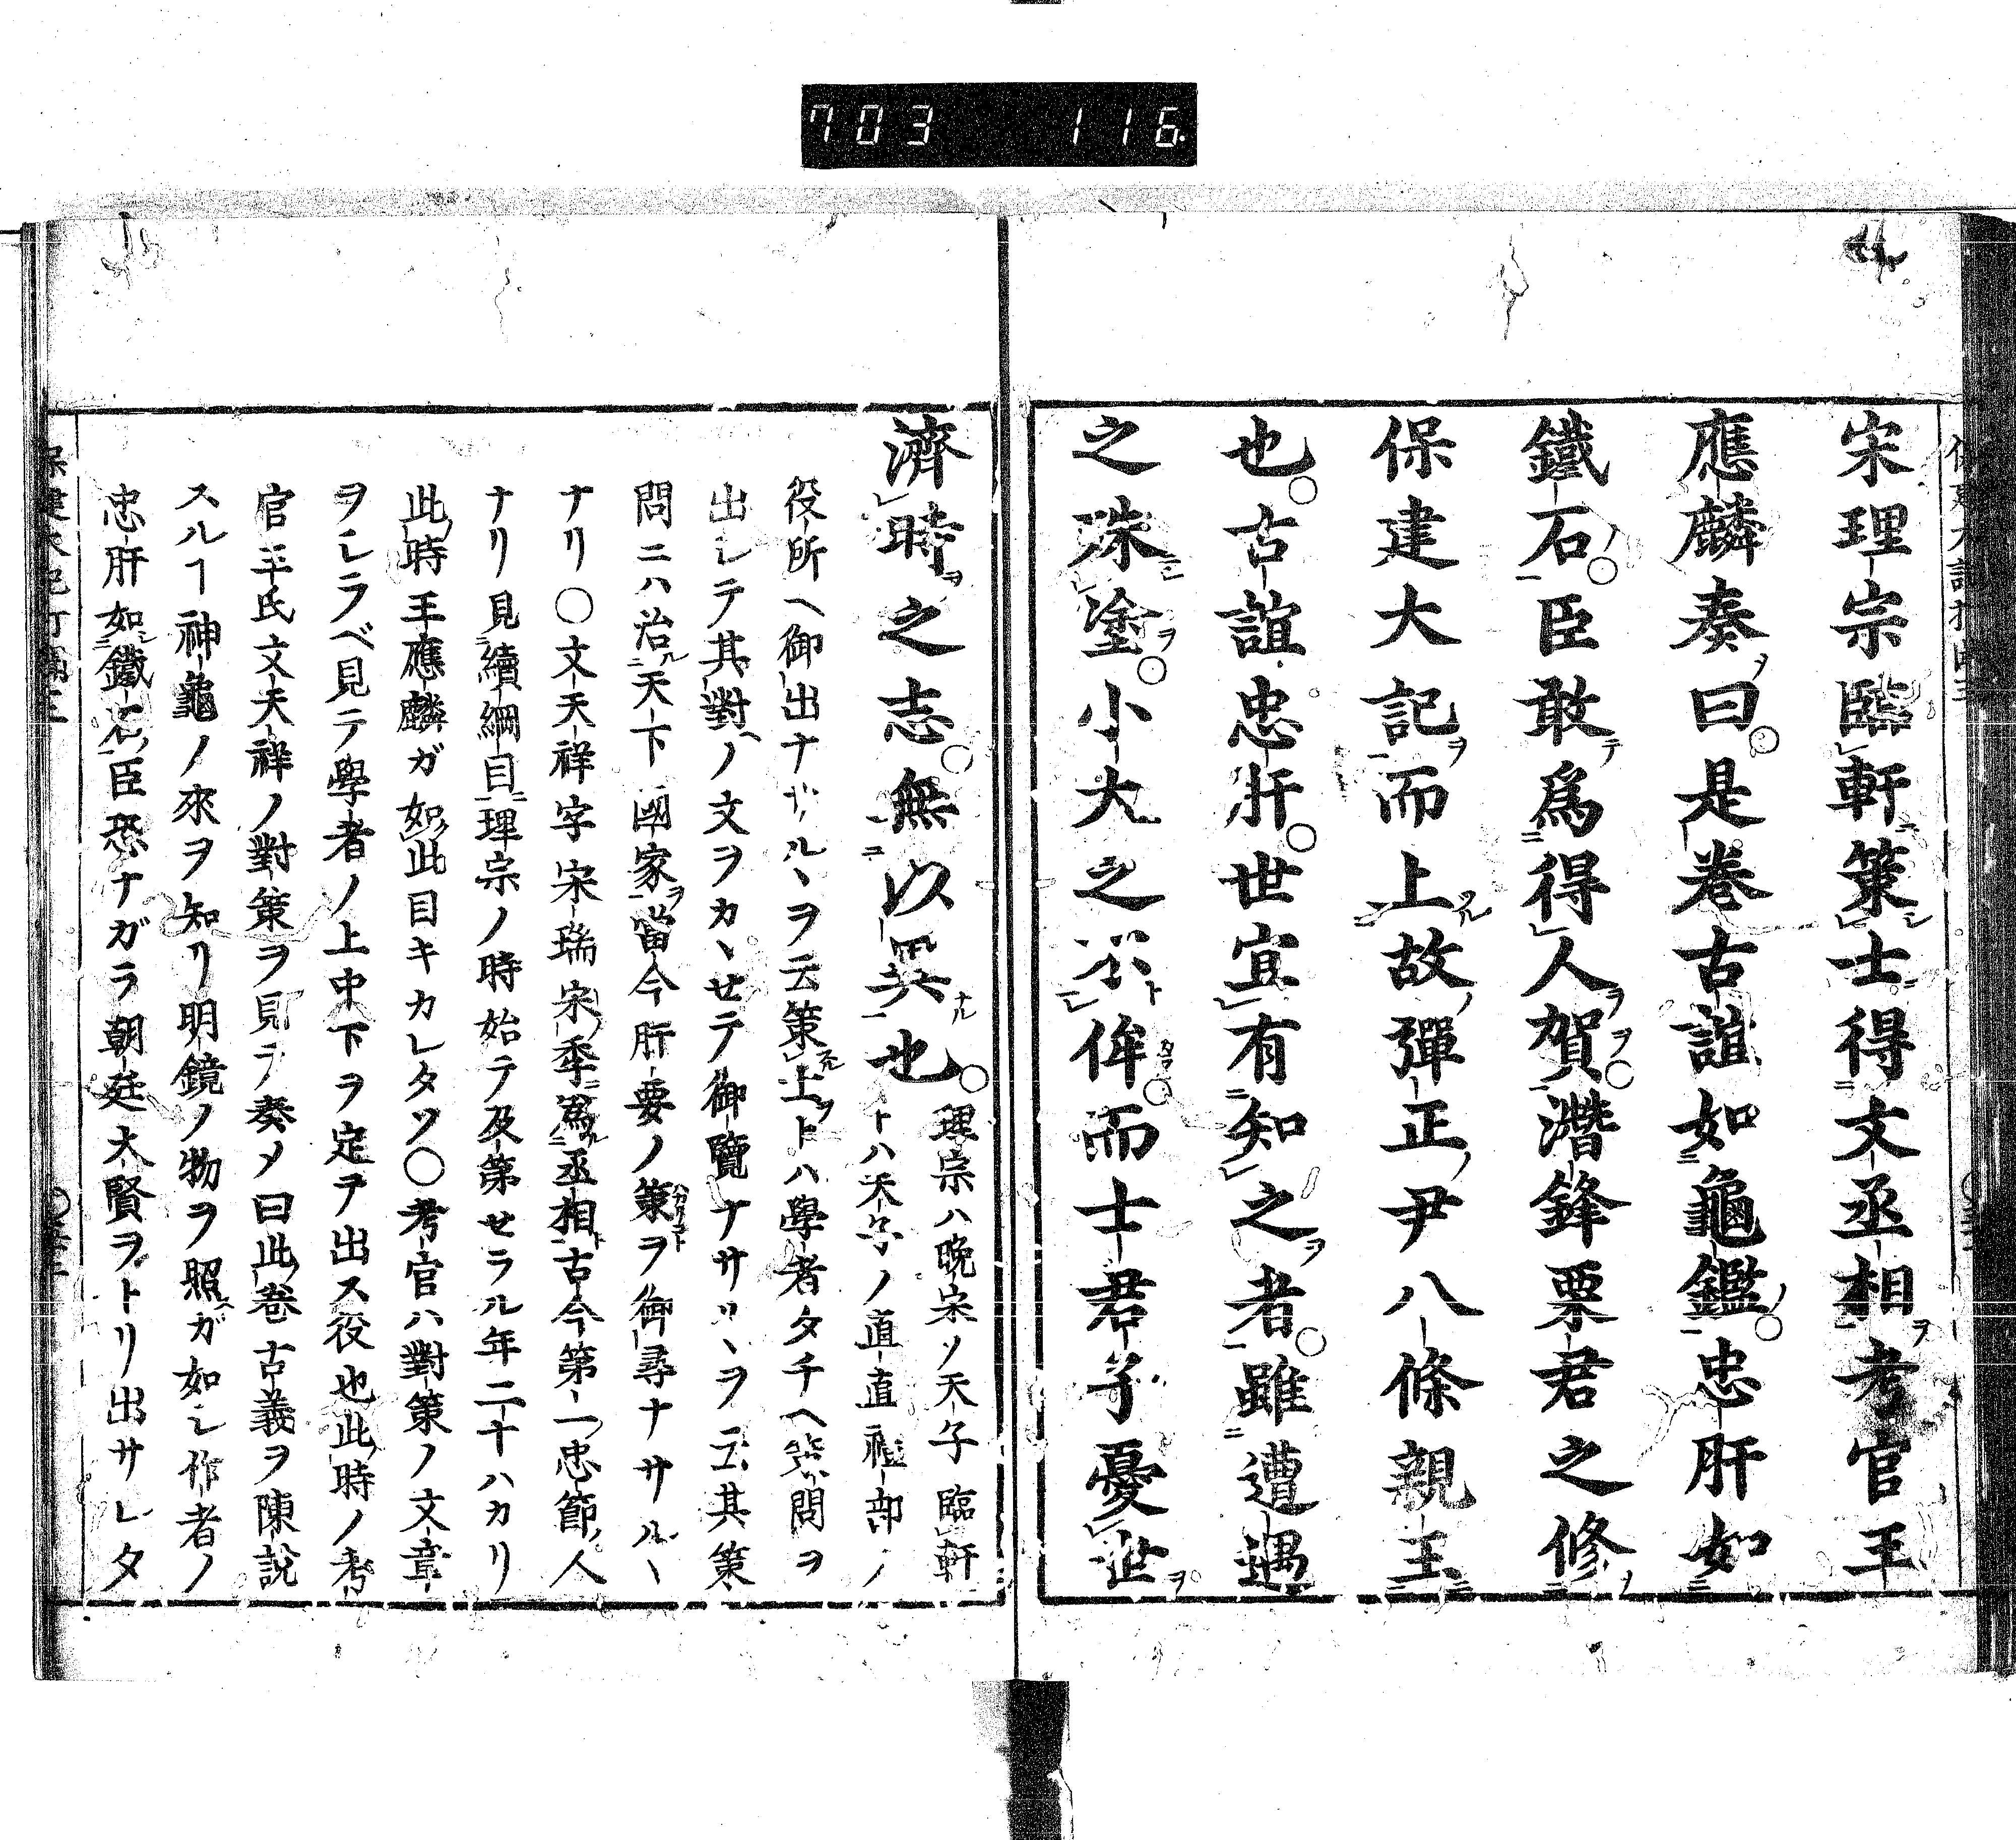 703 116
宋理宗臨軒策士得文丞相考官王
應麟奏曰是巻古誼如龜鑑忠肝如
鐵石臣敢爲得人賀潛鋒栗君之修
保建大記而上故彈正尹八條親王
也古誼忠肝世宜有知之者雖遭遇
之殊塗小大之不侔而士君子憂世
濟時之志無以異也
理宗ハ晩宋ノ天子臨軒
トハ天子ノ直直 ノ
役所ヘ御出ナサルヽヲ云策上トハ學者タチヘ策問ヲ
出シテ其對ノ文ヲカヽせテ御覽ナサルヽヲ云其策
問ニハ治天下國家當今肝要ノ策ヲ御尋ナサルヽ
ナリ〇文天祥字宋瑞宋季爲丞相古今第一忠節人
ナリ見續綱目理宗ノ時始テ及第せラル年二十ハカリ
此時王應麟ガ如此目キカレタソ〇考官ハ對策ノ文章
ヲシラベ見テ學者ノ上中下ヲ定テ出ス役也此時ノ考
官王氏文天祥ノ對策ヲ見テ奏メ曰此巻古義ヲ陳説
スルヿ神龜ノ來ヲ知リ明鏡ノ物ヲ照ガ如シ作者ノ
忠肝如鐵石臣恐ナガラ朝廷大賢ヲトリ出サレタ